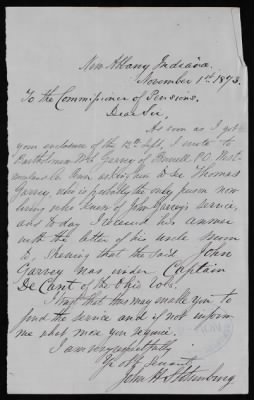 New Albany Indiana.
November 1st 1873.
To the Commissioner of Pensions.
Dear Sir,
As soon as I got
your enclosure of the 12th Sept, I wrote to
Bartholomew Garvey of P.O. West-
moreland Co. asking him to see Thomas
Garvey, who is probably the only person now
living who knew of John Garvey's service,
and to day I received his answer
with the letter of his uncle sworn
to, showing that the said John
Garvey was under Captain
De Cant of the Ohio Vols.
I trust that this may enable you to
find the service and if not inform
me what more you require.
I am very respectfully
Yr obt servant
John H.